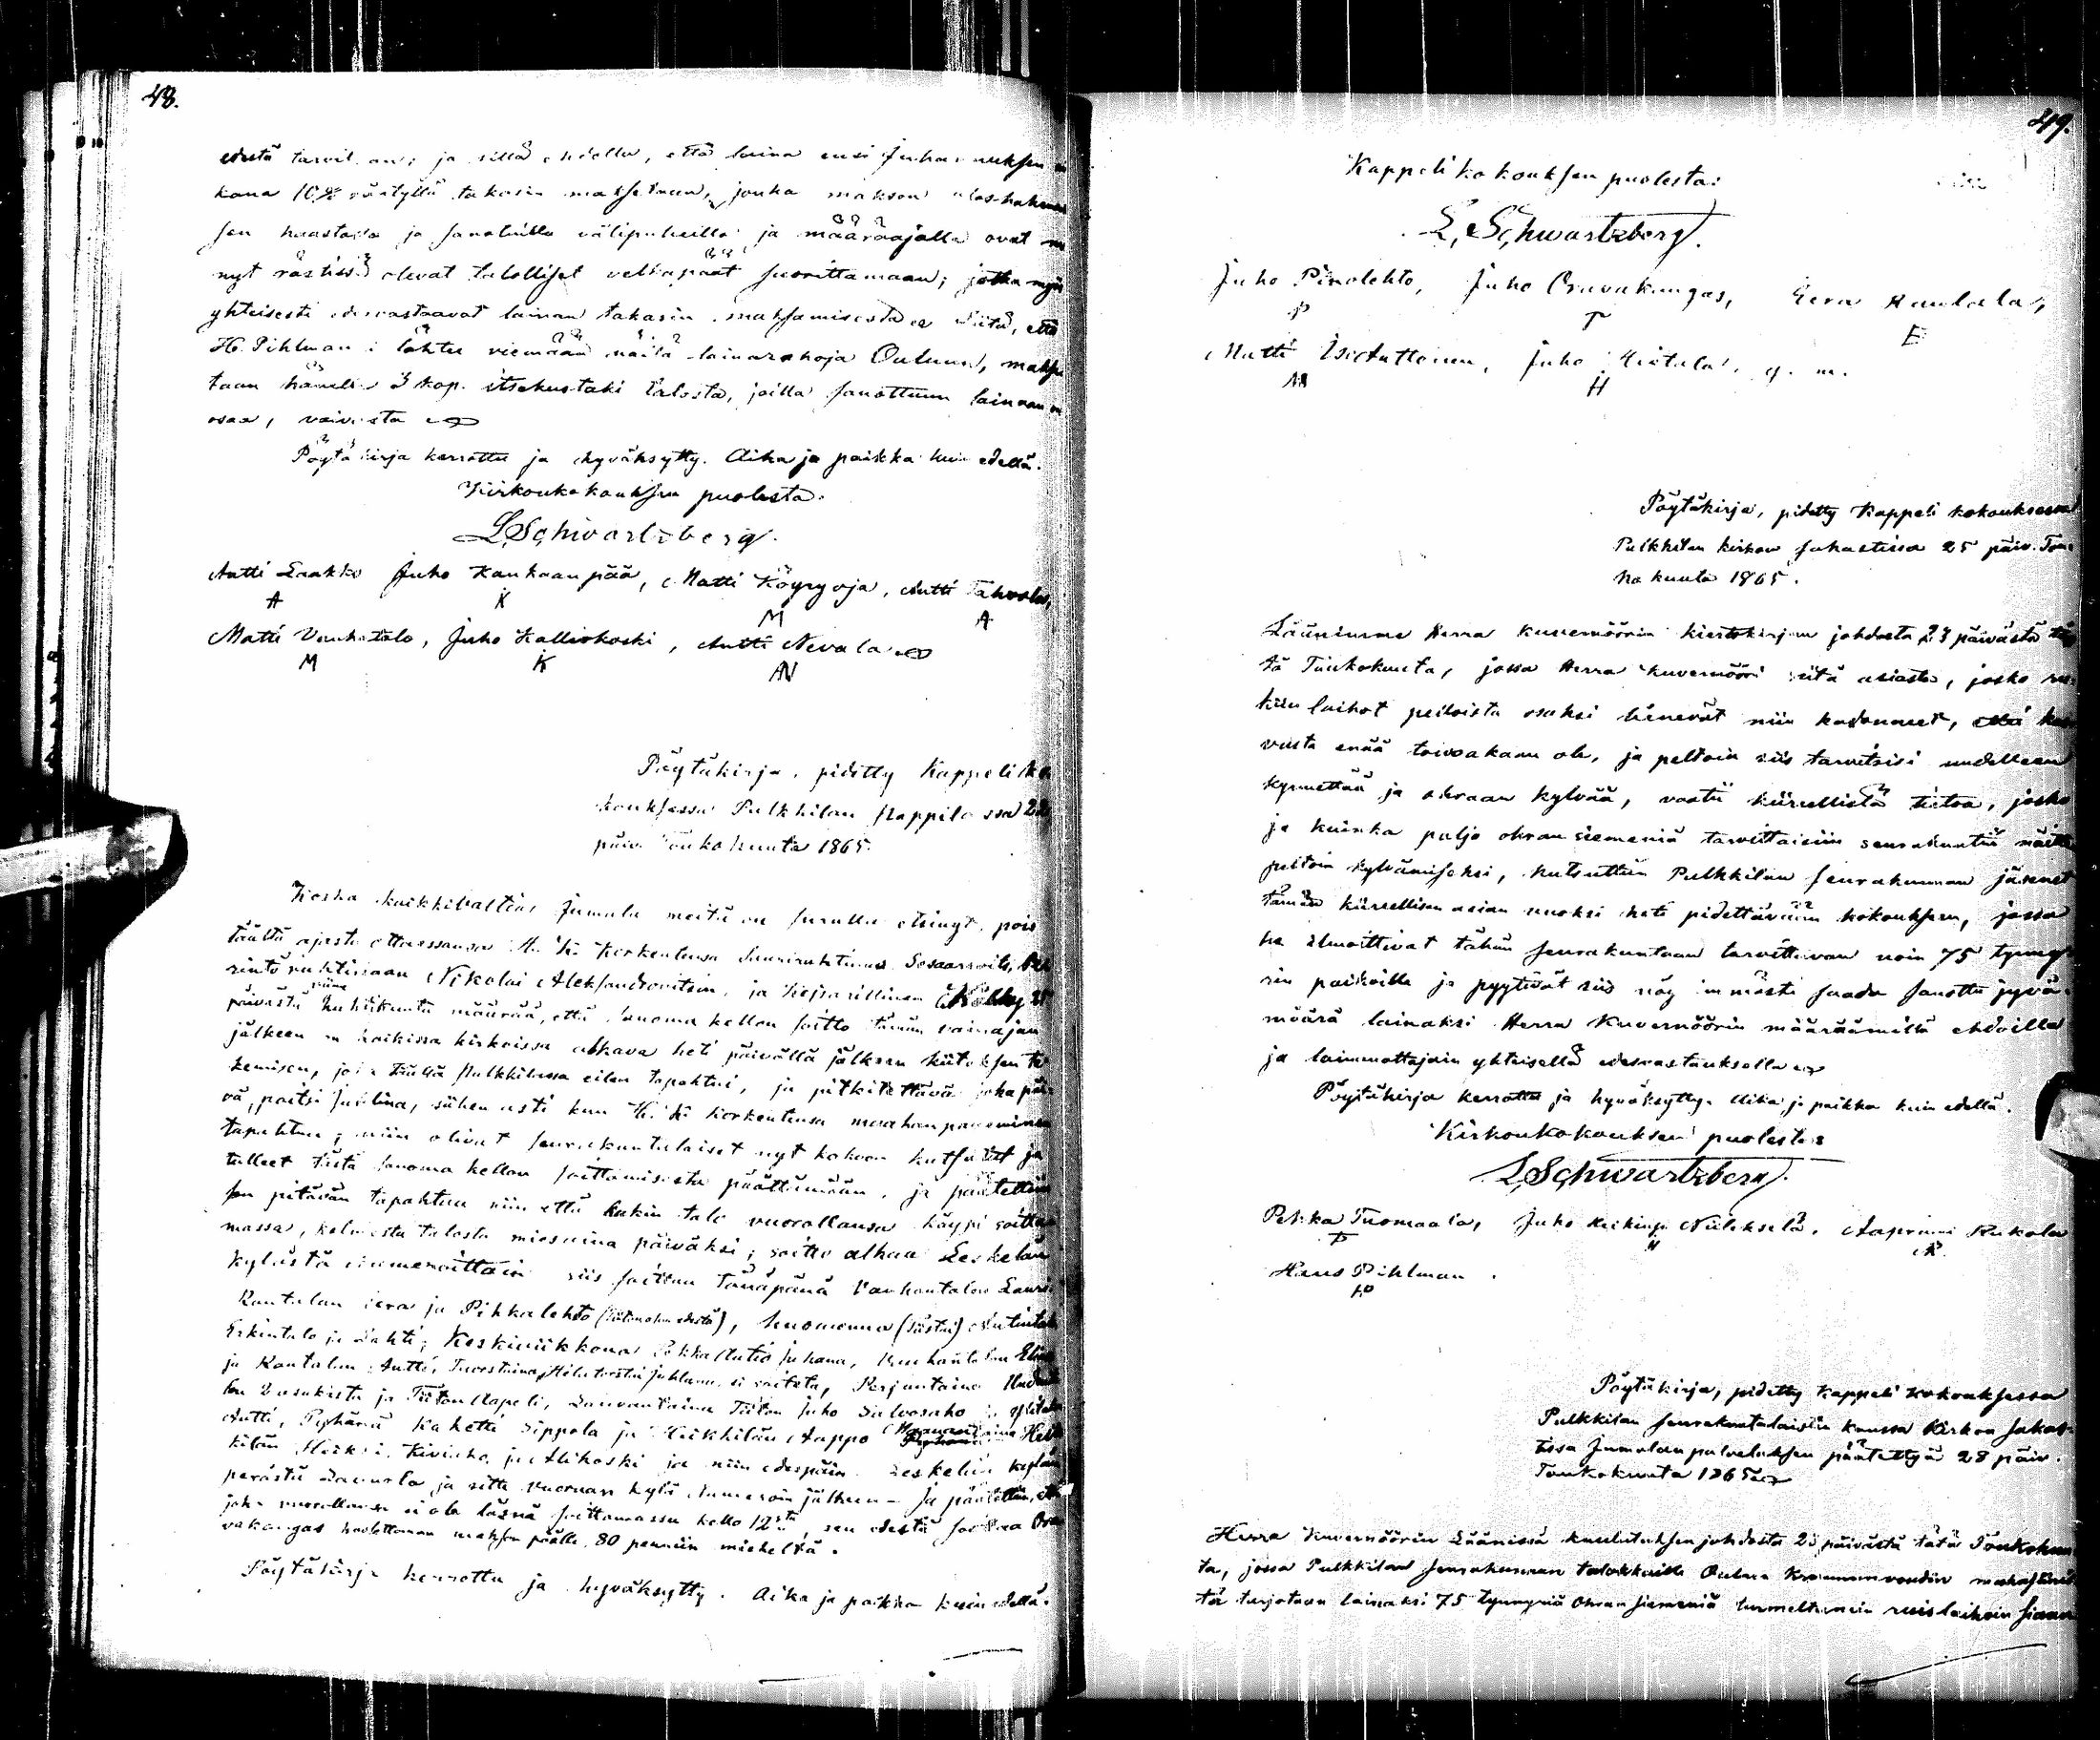 48.
edestä tarvitaan; ja sillä ehdolla, että laina ensi Juhannuksen
kana 10% räntyllä takasin maksetaan, jonka makson
sen huastolla ja sanotuilla välipuheilla ja määräajalla ovat
nyt rästissä olevat talolliset velkapäät suorittamaan; jotka myös
yhteisesti edesvastaavat lainan takasin maksamisesta Siitä, että
H. Pihlman lähtee viemään näitä lainarahoja Ouluun, makse
taan hänelle 3 kop. itsekustaki talosta, joilla sanottuun lainaan on
osaa, vaivasta
Pöytäkirja kerrottu ja hyväksytty. Aika ja paikka kuin edellä.
Kirkonkokouksen puolesta:
L. Schwartzberg.
Antti Laakko Juho Kankaanpää, Matti Köyryoja, Antti Tahvola,
A K M A
Matti Vanhatalo, Juho Kalliokoski, Antti Nevala
M K AN
Pöytäkirja, pidetty Kappeli ko
kouksessa Pulkkilan Pappilassa 22
päiv. Toukokuuta 1865.
Koska kaikkivaltias Jumala meitä on surulla etsinyt, pois
täältä ajasta ottaessansa H. K. Korkeutensa Suuriruhtinas
rintöruhtinaan Nikolai Aleksandrovitsin, ja Keisarillinen Käsky 25
päivästä viime huhtikuuta määrää, että sanoma kellon soitto tämän vainajan
jälkeen on kaikissa kirkoissa alkava heti päivällä jälkeen kiitoksen te
kemisen, joka täällä Pulkkilassa eilen tapahtui, ja pitkitettävä joka päi
vä, paitsi juhlina, siihen asti kun H. K. Korkeutensa maahan paneminen
tapahtuu; niin olivat seurakuntalaiset nyt kokoon kutsutut ja
tulleet tästä sanoma kellon soittamisesta päättämään, ja päätettiin
sen pitävän tapahtua niin että kukin talo vuorollansa käypi soitta
massa, kolmesta talosta miesnina päiväksi; soitto alkaa Leskelän
kylästä numeroittain siis soittaa tänäpänä Vanhantalon Lauri
Rantalan Eera ja Pihkalehto, huomenna (tiistai)
Erkintalo ja Lahti; Keskiviikkona Pekka Autio Juhana, Vanhantalon
ja Rantalan Antti, Tuorstaina, Helatorstai juhlana ei soiteta, Perjantaina
ja Tiitonaapeli, Lauvantaina Tiiton Juho Salvosaho ja
Antti, Pyhänä Kahetti Sippola ja Heikkilän Aappo Maanantaina
kilän Heikki, Kiviaho, ja Alikoski ja niin edespäin Leskelän kylän
perästä Laurola ja sitte Vuornan kylä Numeroin jälkeen – Ja päätettiin, että
joka vuorollansa ei ole läsnä soittamassa kello 12, sen edestä soittaa Ora
vakangas huolettoman makson päälle 80 penniin mieheltä.
Pöytäkirja kerrottu ja hyväksytty. Aika ja paikka kuin edellä.
49.
Kappeli kokouksen puolesta:
L. Schwartzberg.
Juho Pinolehto, Juho Oravakangas, Eera Haulala,
P T E
Matti Isoanttonen, Juho Hietala, y. m.
M H
Pöytäkirja, pidetty Kappeli kokouksessa
Pulkkilan kirkon sakastissa 25 päiv. Tou-
ko kuuta 1865.
Lääninne Herra Kuvernöörin kiertokirjan johdosta 23 päivästä
tä Toukokuuta, jossa Herra Kuvernööri siitä asiasta, josko ru-
kiin laihot pelloista osaksi lienevät niin kadonneet, että kas
vusta enää toivoakaan ole, ja peltoin siis tarvitsisi uudelleen
kynnettää ja ohraan kylvää, vaatii kiirellistä tietoa, josko
ja kuinka paljo ohran siemeniä tarvittaisiin seurakuntiin näitten
peltoin kylvämiseksi, kutsuttiin Pulkkilan seurakunnan jäsenet
tämän kiirellisen asian vuoksi heti pidettävään kokouksen, jossa
he ilmoittivat tähän seurakuntaan tarvittavan noin 75 tynny-
rin paikoille ja pyytävät siis nöyrimmästi saada sanottu jyvä-
määrä lainaksi Herra Kuvernöörin määräämillä ehdoilla
ja lainanottajain yhteisellä edesvastauksella
Pöytäkirja kerrottu ja hyväksytty. Aika ja paikka kuin edellä.
Kirkonkokouksen puolesta:
L. Schwartzberg.
Pekka Tuomaala, Juho Heikinp. Niilekselä, Aaprami Rukola
P H A
Hans Pihlman.
HP
Pöytäkirja, pidetty Kappeli kokouksessa
Pulkkilan seurakuntalaisten kanssa Kirkon sakas-
tissa Jumalan palveluksen päätettyä 28 päiv.
Toukokuuta 1865
Herra Kuvernöörin Läänissä kuulutuksen johdosta 23 päivästä tätä Toukokuu
ta, jossa Pulkkilan seurakunnan talokkaille Oulun Kruununvoudin
tä tarjotaan lainaksi 75 tynnyriä Ohran siemeniä turmeltunein ruislaihoin siaan